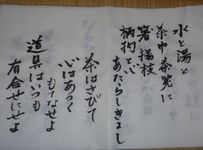 水と湯と
茶巾茶筅に
箸楊枝
柄杓と心
あたらしきよし
茶はさびて
心はあつく
もてなせよ
道具はいつも
有合せにせよ